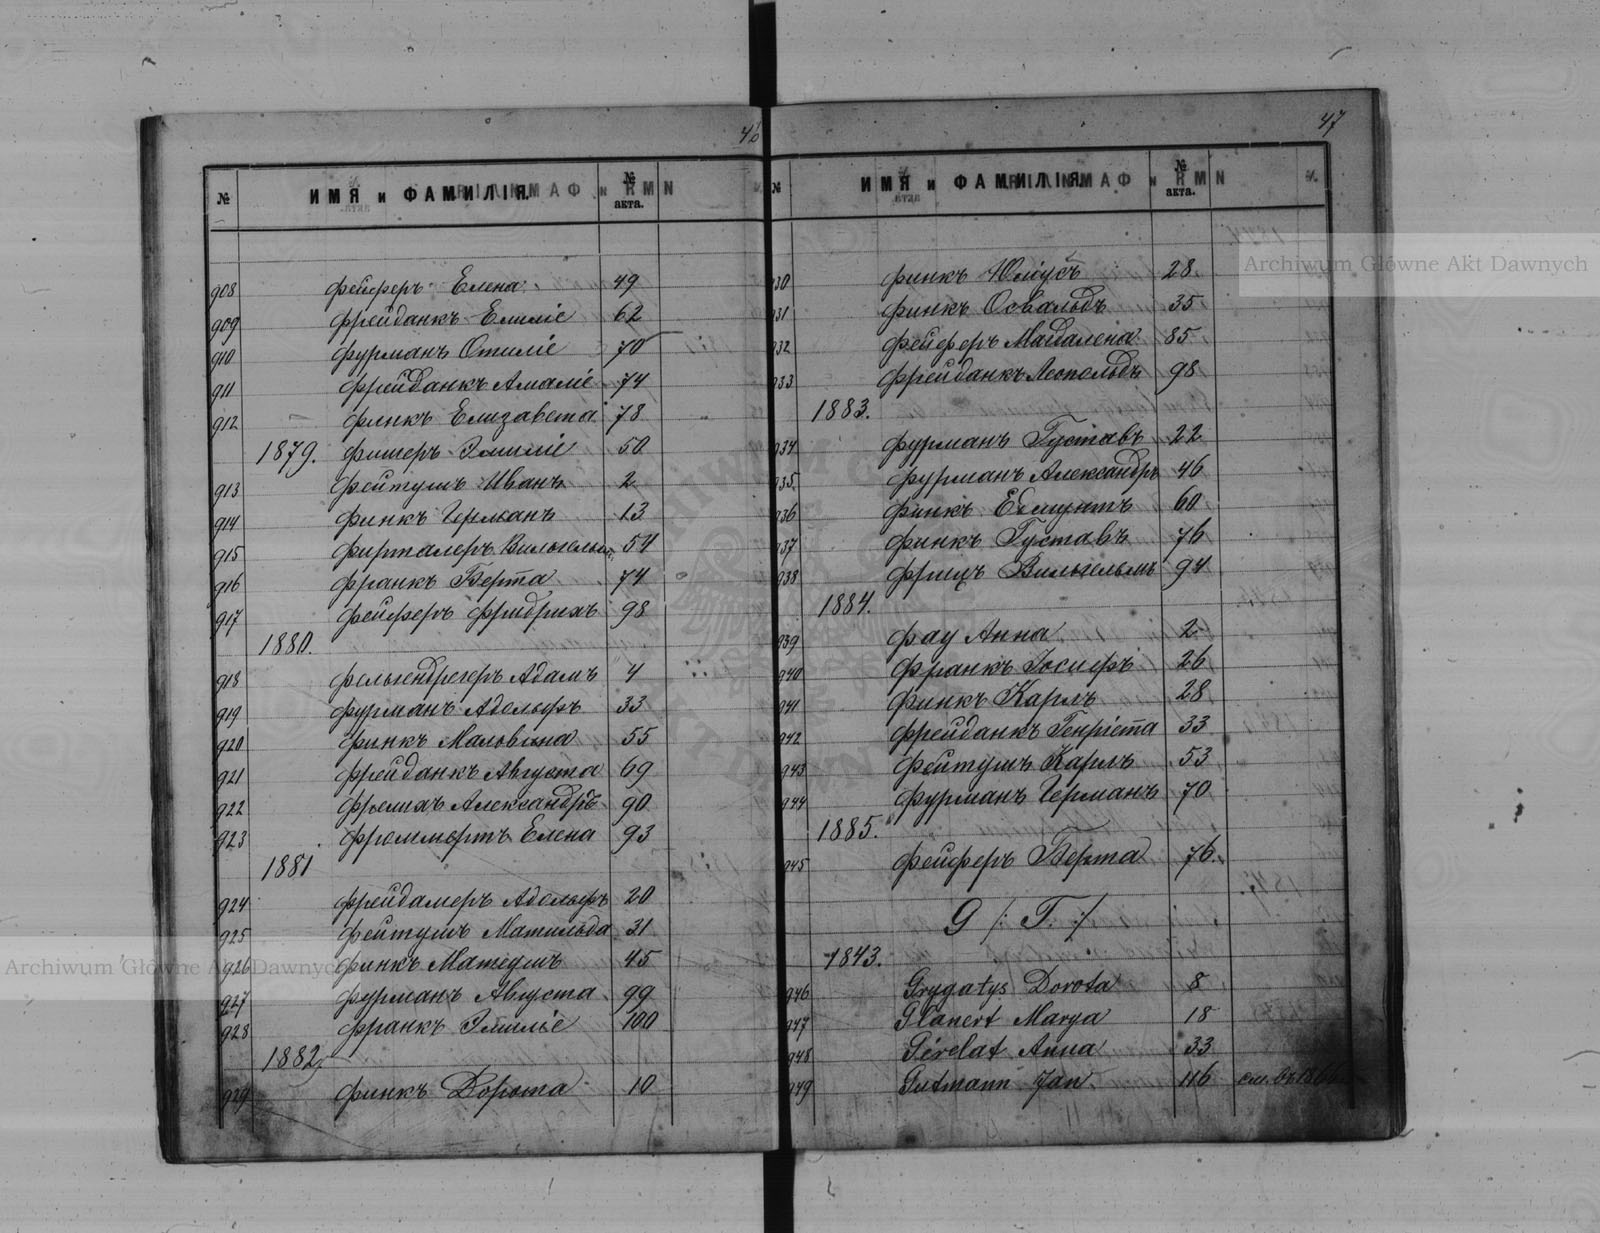 46
№ ИМЯ и ФАМИЛІЯ. № акта.
908 Фейферъ Елена 49
909 Фрейданкъ Емиліе 62
910 Фурманъ Отиліе 70
911 Фрейданкъ Амаліе 74
912 Финкъ Елизавета 78
1879. Фишеръ Эмиліе 50
913 Фейтушъ Иванъ 2
914 Финкъ Германъ 13
915 Фирталеръ Вильгельм. 54
916 Франкъ Берта 74
917 Фейферъ Фридрихъ 98
1880.
918 Фельгендрегеръ Адамъ 4
919 Фурманъ Адольфъ 33
920 Финкъ Мальвина 55
921 Фрейданкъ Августа 69
922 Фрелихъ Александръ 90
923 Фроммертъ Елена 93
1881
924 Фрейдамеръ Адольфъ 20
925 Фейтушъ Матильда 31
926 Финкъ Матеушъ 45
927 Фурманъ Августа 99
928 Франкъ Эмильіе 100
1882
929 Финкъ Дорота 10
47
№ ИМЯ и ФАМИЛІЯ № акта.
930 Финкъ Юліусъ 28
931 Финкъ Освальдъ 35
932 Фейферъ Магдалена 85
933 Фрейданкъ Леопольдъ 98
1883.
934 Фурманъ Густавъ 22
935 Фурманъ Александръ 46
936 Финкъ Едмунтъ 60
937 Финкъ Густавъ 76
938 Фрицъ Вильгельмъ 94
1884.
939 Фау Анна 2
940 Франкъ Іосифъ 26
941 Финкъ Карлъ 28
942 Фрейданкъ Генріета 33
943 Фейтушъ Карлъ 53
944 Фурманъ Германъ 70
1885.
945 Фейферъ Берта 76
G /: Г. :/
1843.
946 Grygatys Dorota 8
947 Glanert Marya 18
948 Girelat Anna 33
949 Gutmann Jan 116 см. въ 1866
Archiwum Główne Akt Dawnych
Archiwum Główne Akt Dawnych